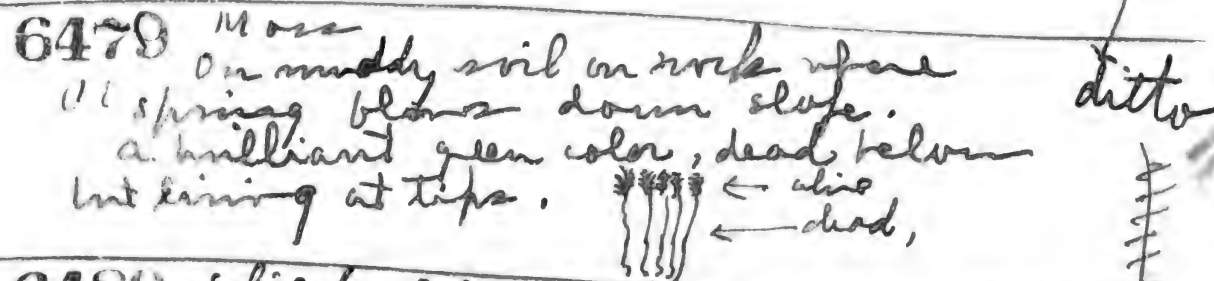 6479 Moss
On muddy soil on rock where ditto
spring flows down slope.
a brilliant green color, dead below
but living at tips. ← alive
← dead,